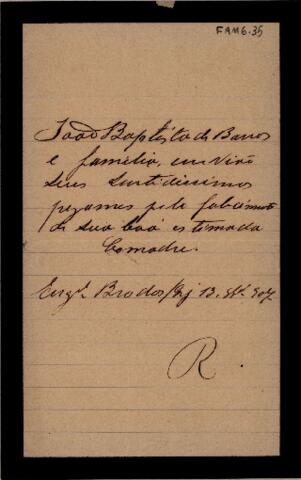 FAM6.35
João Baptista de Barros
e familia, envião
seus sentidissimos
pezames pelo falecimento
de sua boa estimada
Comadre.
Brodos 13
R